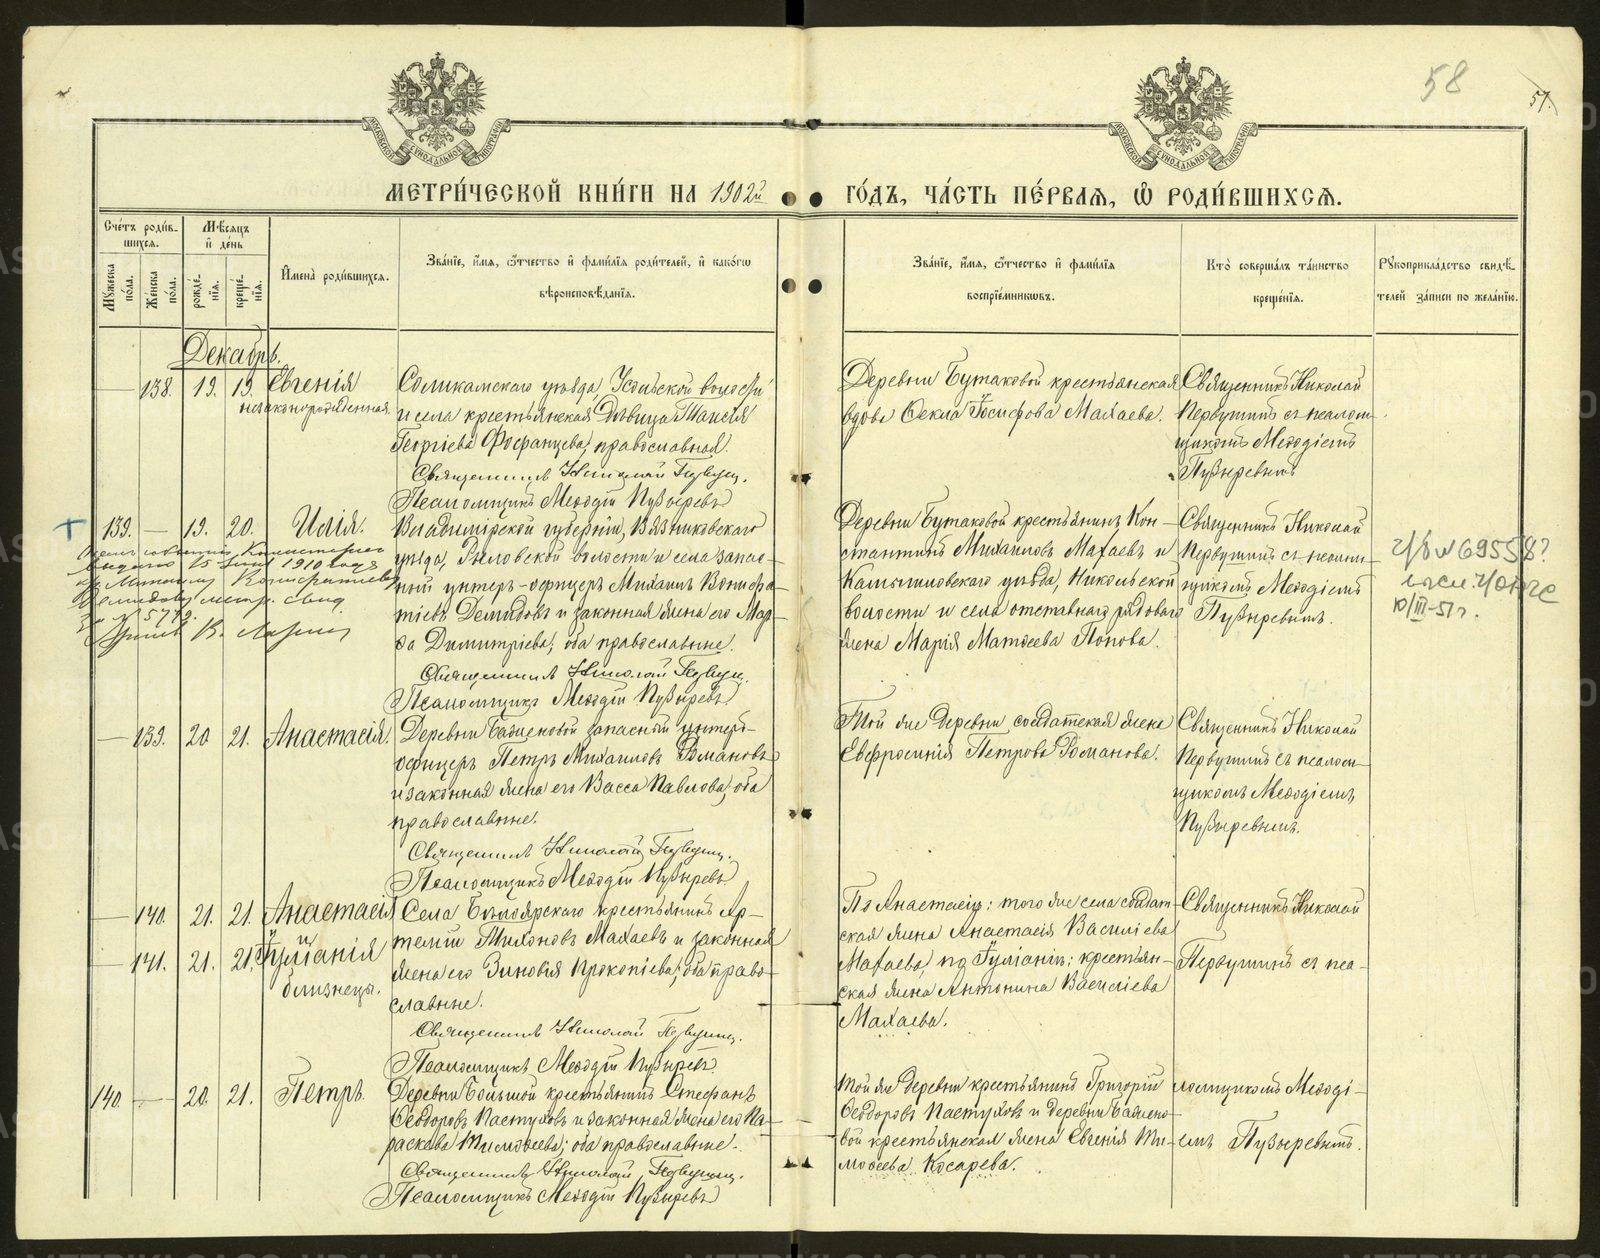 58
57.
МОСКОВСКОЙ СѴНОДАЛЬНОЙ ТИПОГРАФІИ
МОСКОВСКОЙ СѴНОДАЛЬНОЙ ТИПОГРАФІИ
МЕТРИ́ЧЕСКОЙ КНИ́ГИ НА 1902й ГО́ДЪ, ЧА́СТЬ ПЕ́РВАѦ, Ѡ РОДИ́ВШИХСѦ.
Сче́тъ роди́в-
шихся.
Мꙋ́жеска по́ла.
Же́нска по́ла.
Мѣ́сяцъ и де́нь
рожде́-
нїя.
креще́-
нїя.
Имена̀ роди́вшихся.
Зва́нїе, и́мя, ѻ́тчество и фами́лїя роди́телей, и како́гѡ
вѣроисповѣ́данїя.
Зва́нїе, и́мя, ѻ́тчество и фами́лїя
воспрїе́мникѡвъ.
Кто̀ соверша́лъ та́инство
креще́нїя.
Рꙋкоприкла́дство свидѣ́-
телей за́писи по жела́нїю.
Декабрь.
138. 19. 19. Евгенія
незаконорожденная.
Соликамскаго уѣзда, Усольской волости
и села крестьянская дѣвица Таисія
Георгіева Фофанцева, православная.
Священникъ Николай Первуш.
Псаломщикъ Меѳодій Пузыревъ
Деревни Бутаковой крестьянская
вдова Ѳекла Іосифова Махаева.
Священникъ Николай
Первушинъ съ псалом-
щикомъ Меѳодіемъ
Пузыревымъ
139. 19. 20. Илія.
Владимірской губерніи, Вязниковскаго
уѣзда, Рыловской волости и села запас-
ный унтеръ-офицеръ Михаилъ Вонифа-
тіевъ Демидовъ и законная жена его Мар-
ѳа Димитріева; оба православные.
Священникъ Николай Первуш.
Псаломщикъ Меѳодій Пузыревъ
Деревни Бутаковой крестьянинъ Кон-
стантинъ Михаиловъ Махаевъ и
Камышловскаго уѣзда, Никольской
волости и села отставнаго рядового
жена Марія Матѳеева Попова.
Священникъ Николай
Первушинъ съ псалом-
щикомъ Меѳодіемъ
Пузыревымъ.
Консисторіи
выдано 15 1910 года
Михаилу Вонифатіеву
Демидову метр. свид.
за № 5772.
№ 69558?
10/III-51 г.
139. 20 21. Анастасія.
Деревни Баженовой запасный унтеръ-
офицеръ Петръ Михаиловъ Романовъ
и законная жена его Васса Павлова, оба
православные.
Священникъ Николай Первуш.
Псаломщикъ Меѳодій Пузыревъ
Той же деревни солдатская жена
Евфросинія Петрова Романова.
Священникъ Николай
Первушинъ съ псалом-
щикомъ Меѳодіемъ
Пузыревымъ.
140. 21. 21. Анастасія
141. 21. 21. Іуліанія
близнецы.
Села Бѣлоярскаго крестьянинъ Ар-
темій Тихоновъ Махаевъ и законная
жена его Зиновія Прокопіева; оба право-
славные.
Священникъ Николай Первуш.
Псаломщикъ Меѳодій Пузыревъ
По Анастасіи: того же села солдат-
ская жена Анастасія Василіева
Махаева, по Іуліаніи: крестьян-
ская жена Антонина Василіева
Махаева.
Священникъ Николай
Первушинъ съ пса-
140. 20. 21. Петръ.
Деревни Большой крестьянинъ Стефанъ
Ѳеодоровъ Пастуховъ и законная жена его Па-
раскева Тимоѳеева; оба православные.
Священникъ Николай Первуш.
Псаломщикъ Меѳодій Пузыревъ
Той же деревни крестьянинъ Григорій
Ѳеодоровъ Пастуховъ и деревни Бажено-
вой крестьянская жена Евгенія Ти-
моѳеева Косарева.
ломщикомъ Меѳоді-
емъ Пузыревымъ.